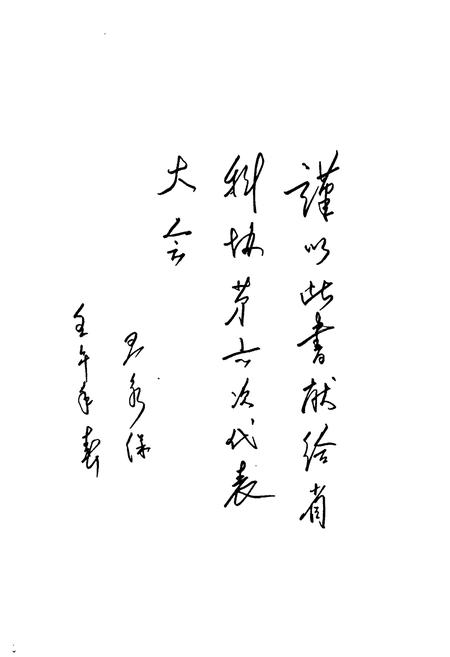 謹以此書献给省
科协第六次代表
大会
保
壬午年春